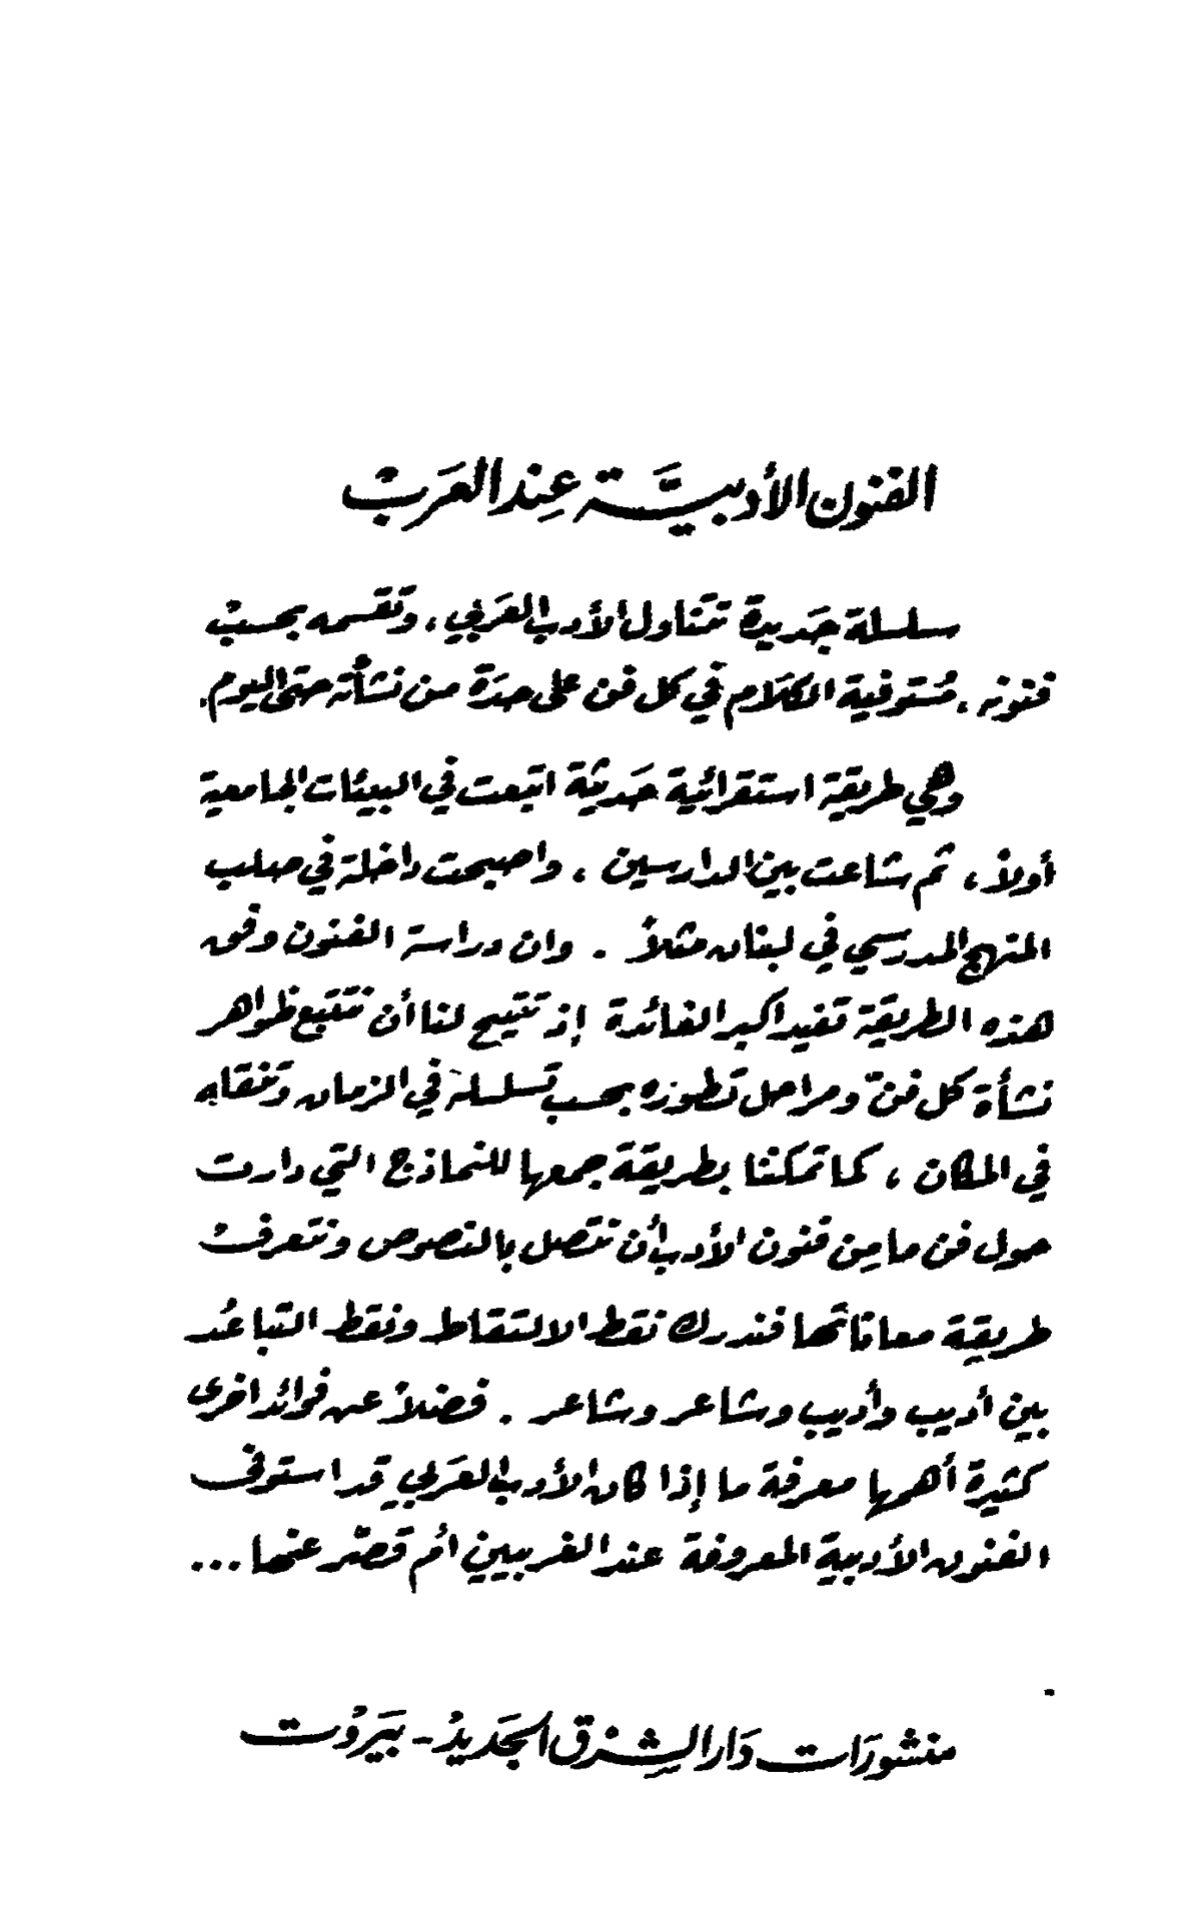 الفنون الأدبيَّة عِند العَرب
سلسلة جَديدة تتناول الأدب العَربي، وتقسمه بحسب
فنونه، مُستوفية الكلام في كل فن على حدَة من نشأته حتى اليوم.
وهي طريقة استقرائية حَديثة اتبعت في البيئات الجامعية
أولاً، ثم شاعت بين الدارسين، واصبحت داخلة في صلب
المنهج المدرسي في لبنان مثلاً. وان دراسة الفنون وفق
هذه الطريقة تفيد اكبر الفائدة إذ تتيح لنا أن نتتبع ظواهر
نشأة كل فنّ ومراحل تطوره بحسب تسلسله في الزمان وتنقله
في المكان، كما تمكننا بطريقة جمعها للنماذج التي دارت
حول فن ما مِن فنون الأدب أن نتصل بالنصوص ونتعرف
طريقة معاناتها فندرك نقط الالتقاط ونقط التباعُد
بين أديب وأديب وشاعر وشاعر. فضلاً عن فوائد اخرى
كثيرة أهمها معرفة ما إذا كان الأدب العَربي قد استوفى
الفنون الأدبية المعروفة عند الغربيين أم قصّر عنها...
منشورَات دَار الشِرق الجَديد - بَيروت